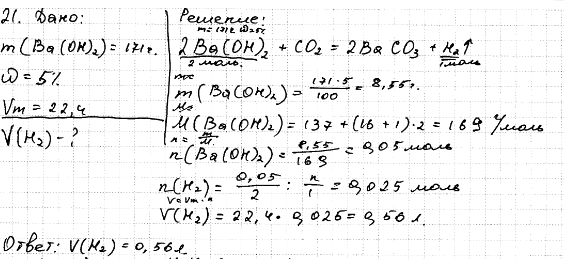 21. Дано:
m(Ba(OH)₂) = 171 г.
ω = 5%
Vm = 22,4
V(H₂) - ?
Решение:
m=171г ω=5%
2Ba(OH)₂ + CO₂ = 2BaCO₃ + H₂↑
2 моль 1 моль
m(Ba(OH)₂) = 171·5/100 = 8,55 г.
M(Ba(OH)₂) = 137 + (16 + 1)·2 = 169 г/моль
n = m/M
n(Ba(OH)₂) = 8,55/169 = 0,05 моль
n(H₂) = 0,05/2 : n/1 = 0,025 моль
V = Vm · n
V(H₂) = 22,4 · 0,025 = 0,56 л.
Ответ: V(H₂) = 0,56 л